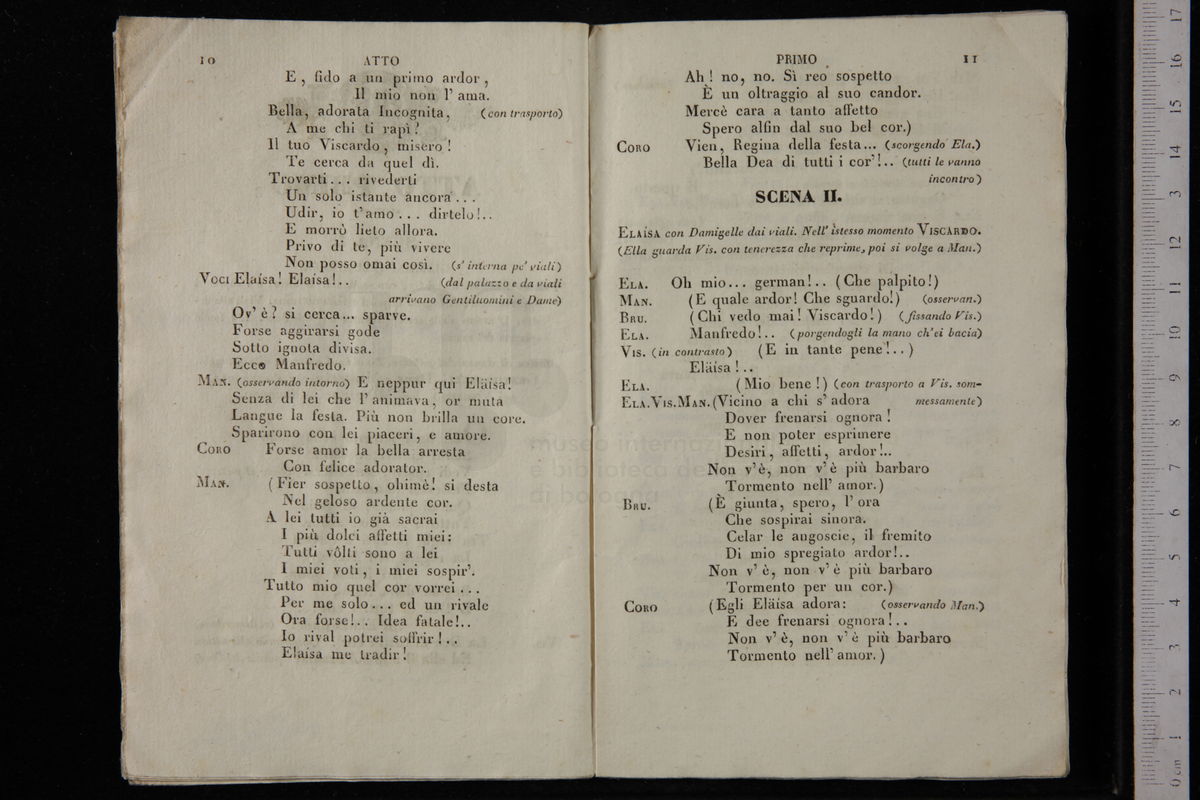 10 ATTO
E, fido a un primo ardor,
Il mio non l' ama.
Bella, adorata Incognita, (con trasporto)
A me chi ti rapì?
Il tuo Viscardo, misero!
Te cerca da quel dì.
Trovarti... rivederti
Un solo istante ancora...
Udir, io t'amo... dirtelo!..
E morrò lieto allora.
Privo di te, più vivere
Non posso omai così. (s' interna pe' viali)
Voci Elaisa! Elaisa!.. (dal palazzo e da viali
arrivano Gentiluomini e Dame)
Ov' è? si cerca... sparve.
Forse aggirarsi gode
Sotto ignota divisa.
Ecco Manfredo.
Man. (osservando intorno) E neppur qui Elaïsa!
Senza di lei che l' animava, or muta
Langue la festa. Più non brilla un core.
Sparirono con lei piaceri, e amore.
Coro Forse amor la bella arresta
Con felice adorator.
Man. (Fier sospetto, ohimè! si desta
Nel geloso ardente cor.
A lei tutti io già sacrai
I più dolci affetti miei:
Tutti vôlti sono a lei
I miei voti, i miei sospir'.
Tutto mio quel cor vorrei...
Per me solo... ed un rivale
Ora forse!.. Idea fatale!..
Io rival potrei soffrir!..
Elaísa me tradir!
PRIMO 11
Ah! no, no. Sì reo sospetto
È un oltraggio al suo candor.
Mercè cara a tanto affetto
Spero alfin dal suo bel cor.)
Coro Vien, Regina della festa... (scorgendo Ela.)
Bella Dea di tutti i cor'!.. (tutti le vanno
incontro)
SCENA II.
Elaisa con Damigelle dai viali. Nell' istesso momento Viscardo.
(Ella guarda Vis. con tenerezza che reprime, poi si volge a Man.)
Ela. Oh mio... german!.. (Che palpito!)
Man. (E quale ardor! Che sguardo!) (osservan.)
Bru. (Chi vedo mai! Viscardo!) (fissando Vis.)
Ela. Manfredo!.. (porgendogli la mano ch'ei bacia)
Vis. (in contrasto) (E in tante pene!..)
Elaïsa!..
Ela. (Mio bene!) (con trasporto a Vis. som-
Ela. Vis. Man. (Vicino a chi s' adora messamente)
Dover frenarsi ognora!
E non poter esprimere
Desiri, affetti, ardor!..
Non v'è, non v'è più barbaro
Tormento nell' amor.)
Bru. (È giunta, spero, l' ora
Che sospirai sinora.
Celar le angoscie, il fremito
Di mio spregiato ardor!..
Non v' è, non v' è più barbaro
Tormento per un cor.)
Coro (Egli Elaïsa adora: (osservando Man.)
E dee frenarsi ognora!..
Non v' è, non v' è più barbaro
Tormento nell' amor.)
museo internaz
e biblioteca de
di bologna
0 cm 1 2 3 4 5 6 7 8 9 10 11 12 13 14 15 16 17